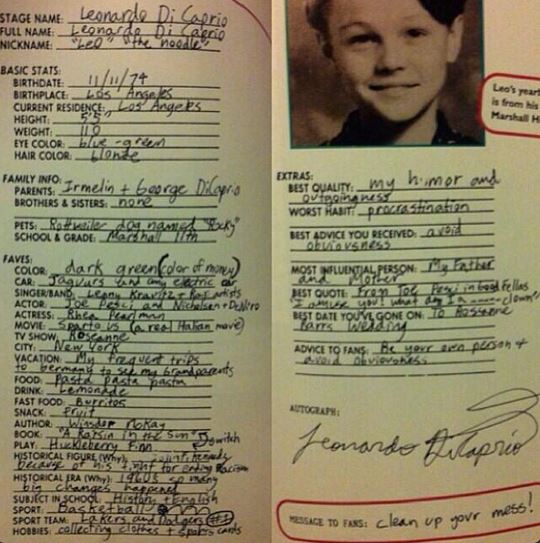 STAGE NAME: Leonardo Di Caprio
FULL NAME: Leonardo Di Caprio
NICKNAME: "Leo" "the noodle"
BASIC STATS:
BIRTHDATE: 11/11/74
BIRTHPLACE: Los Angeles
CURRENT RESIDENCE: Los Angeles
HEIGHT: 5'5"
WEIGHT: 110
EYE COLOR: blue-green
HAIR COLOR: blonde
FAMILY INFO:
PARENTS: Irmelin + George DiCaprio
BROTHERS & SISTERS: none
PETS: Rottweiler dog named "Rocky"
SCHOOL & GRADE: Marshall 11th
FAVES:
COLOR: dark green (color of money)
CAR: Jaguars and any electric car
SINGER/BAND: Lenny Kravitz + Rap artists
ACTOR: Joe Pesci and Nicholson + DeNiro
ACTRESS: Rhea Pearlman
MOVIE: Spartacus (a real Italian movie)
TV SHOW: Roseanne
CITY: New York
VACATION: My frequent trips
to Germany to see my Grandparents
FOOD: Pasta pasta pasta
DRINK: Lemonade
FAST FOOD: Burritos
SNACK: fruit
AUTHOR: Winsdor McKay
BOOK: "A Raisin in the Sun" switch
PLAY: Huckleberry Finn
HISTORICAL FIGURE (Why): Kennedy
because of his fight for ending Racism
HISTORICAL ERA (Why): 1960s so many
big changes happened
SUBJECT IN SCHOOL: History + English
SPORT: Basketball
SPORT TEAM: Lakers and Dodgers #1
HOBBIES: collecting clothes + sports cards
Leo's year
is from his
Marshall H
EXTRAS:
BEST QUALITY: my humor and
outgoingness
WORST HABIT: procrastination
BEST ADVICE YOU RECEIVED: avoid
obviousness
MOST INFLUENTIAL PERSON: My Father
and Mother
BEST QUOTE: From Joe Pesci in Good Fellas
"I amuse you! what am I a ---- clown"
BEST DATE YOU'VE GONE ON: To Roseanne
Barrs Wedding
ADVICE TO FANS: Be your own person +
avoid obviousness
AUTOGRAPH:
Leonardo DiCaprio
MESSAGE TO FANS: clean up your mess!